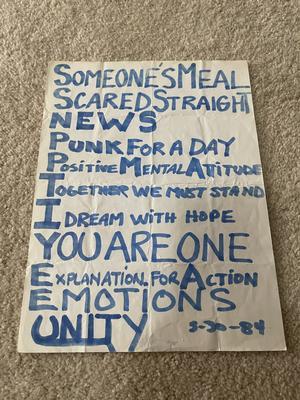 SOMEONE'S MEAL
SCARED STRAIGHT
NEWS
PUNK FOR A DAY
POSITIVE MENTAL ATTITUDE
TOGETHER WE MUST STAND
I DREAM WITH HOPE
YOU ARE ONE
EXPLANATION FOR ACTION
EMOTIONS
UNITY 3-30-84